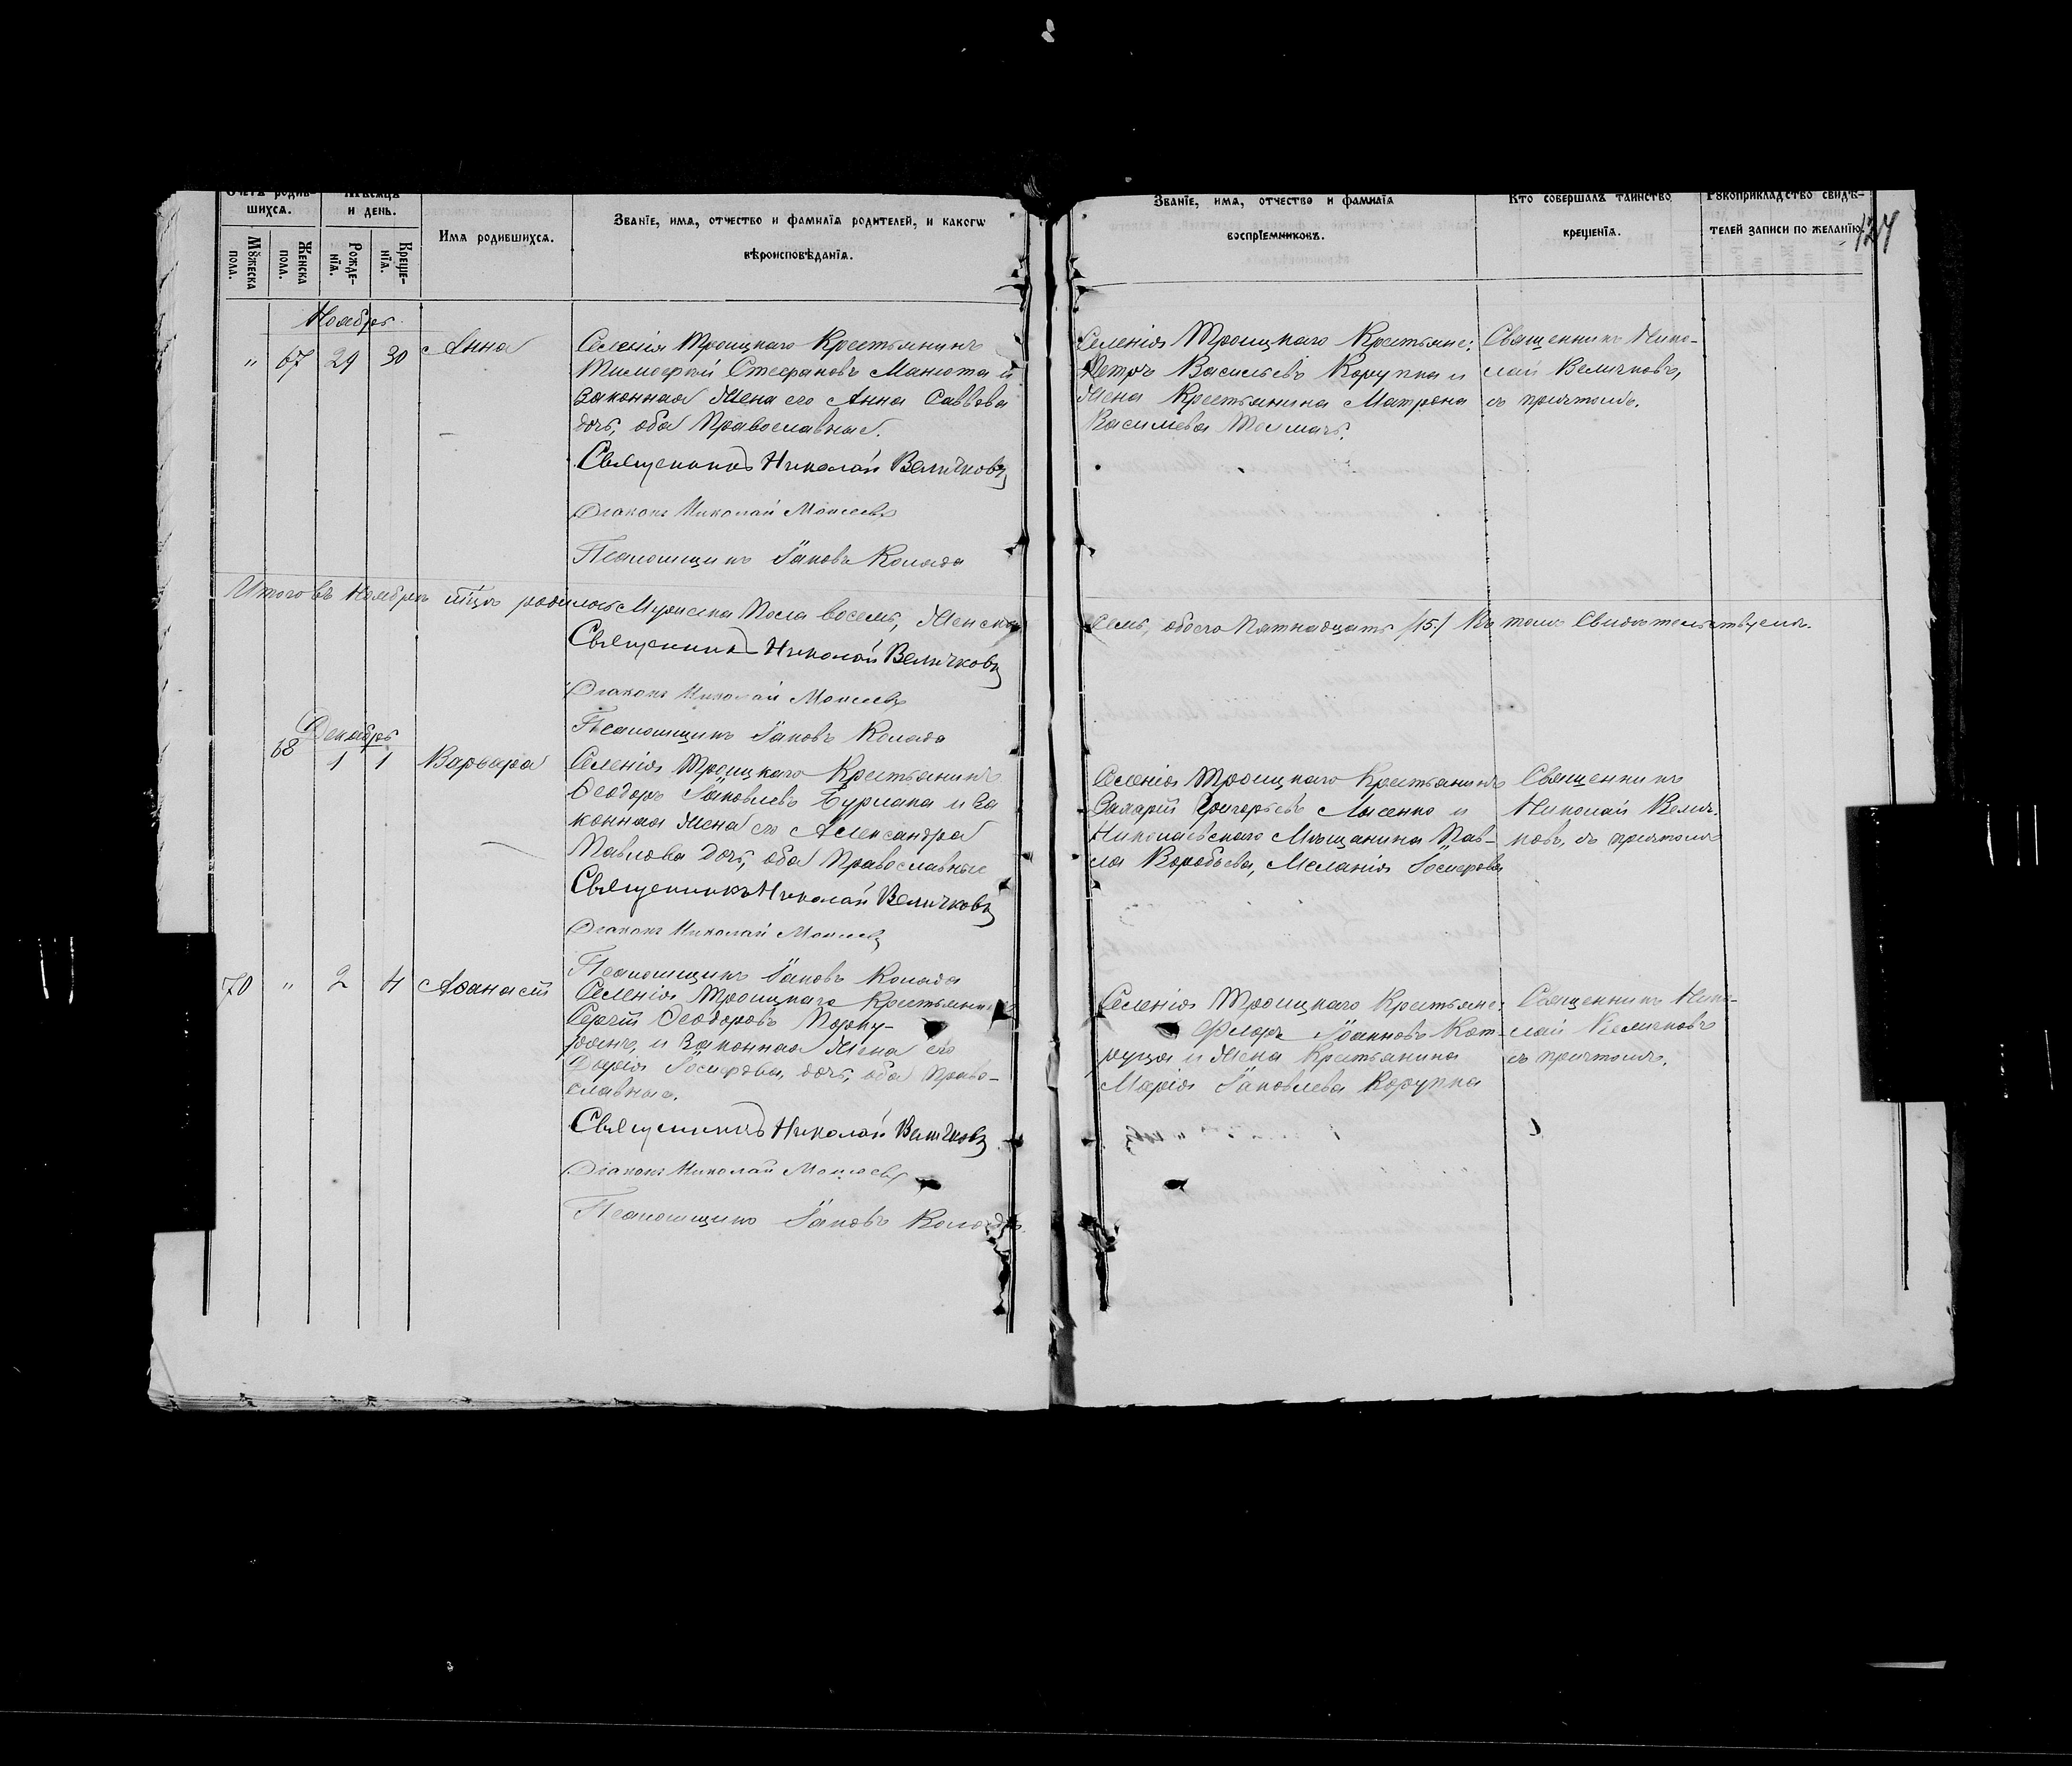 Счетъ родив-
шихся.
Мѣсяцъ
и день.
Мꙋжеска
пола.
Женска
пола.
Рожде-
нїя.
Креще-
нїя.
Имя родившихся.
Званїе, имя, отчество и фамилїя родителей, и какогѡ
вѣроисповѣданїя.
Званїе, имя, отчество и фамилїя
воспрїемниковъ.
Кто совершалъ таинство
крещенїя.
Рꙋкоприкладство свидѣ-
телей записи по желанїю.
124
Ноябрь
" 67 29 30 Анна
Селенія Троицкаго Крестьянинъ
Тимоѳей Стефановъ Манюта и
законная жена его Анна Саввова
дочь, оба Православные.
Священникъ Николай Величковъ
Діаконъ Николай Моисеевъ
Псаломщикъ Іаковъ Колада
Селенія Троицкаго Крестьяне:
Петръ Васильевъ Корупка и
жена Крестьянина Матрона
Васильева Толмачъ.
Священникъ Нико-
лай Величковъ,
съ причтомъ.
Итого въ Ноябрѣ м-цѣ родилось Мужеска Пола восемь, Женска
Семь, обоего Пятнадцать /15./ Въ томъ Свидѣтельствуемъ.
Священникъ Николай Величковъ
Діаконъ Николай Моисеевъ
Псаломщикъ Іаковъ Колада
Декабрь
68 1 1 Варвара
Селенія Троицкаго Крестьянинъ
Ѳеодоръ Іаковлевъ Бурлака и за
конная жена его Александра
Павлова дочь, оба Православные
Священникъ Николай Величковъ
Діаконъ Николай Моисеевъ
Псаломщикъ Іаковъ Колада
Селенія Троицкаго Крестьянинъ
Захарій Григорьевъ Лисенко и
Николаевскаго Мѣщанина Пав-
ла Воробьева, Меланія Іосифова
Священникъ
Николай Велич-
ковъ, съ причтомъ
70 " 2 4 Аѳанасій
Селенія Троицкаго Крестьянинъ
Сергій Ѳеодоровъ
и Законная жена его
Дарія Іосифова, дочь, оба Право-
славные.
Священникъ Николай Величковъ
Діаконъ Николай Моисеевъ
Псаломщикъ Іаковъ Колада
Селенія Троицкаго Крестьяне:
Флоръ Іоанновъ
и жена Крестьянина
Марія Іаковлева Корупка
Священникъ Нико-
лай Величковъ
съ причтомъ.